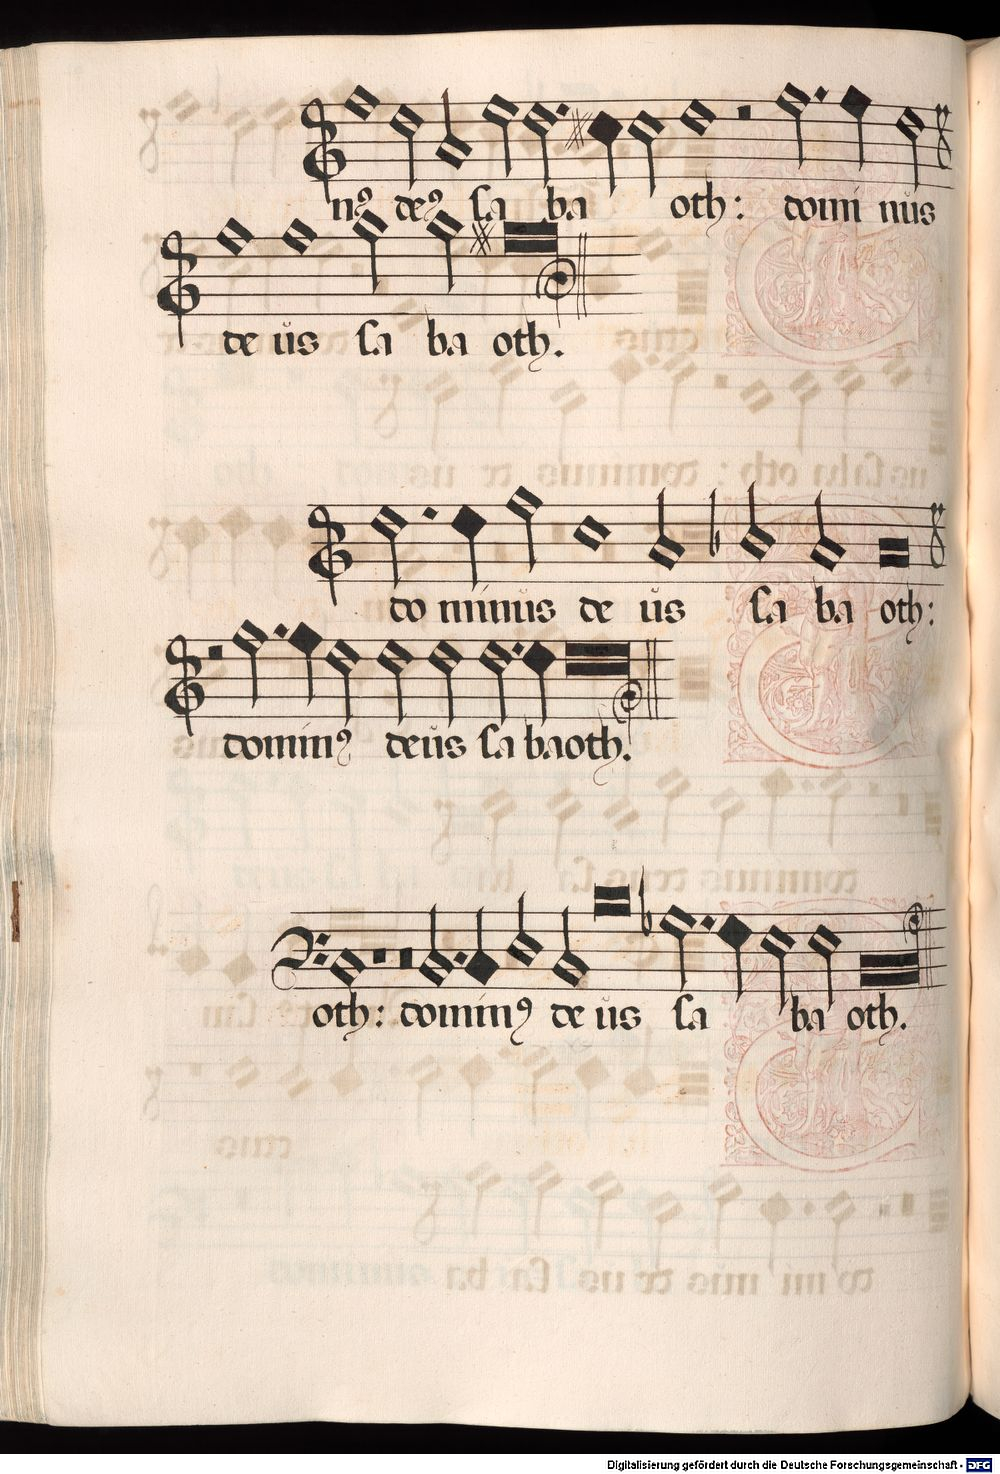 nꝰ deꝰ sa ba oth: domi nus
de us sa ba oth.
do minus de us sa ba oth:
dominꝰ deus sa baoth.
oth: dominꝰ de us sa ba oth.
Digitalisierung gefördert durch die Deutsche Forschungsgemeinschaft - DFG